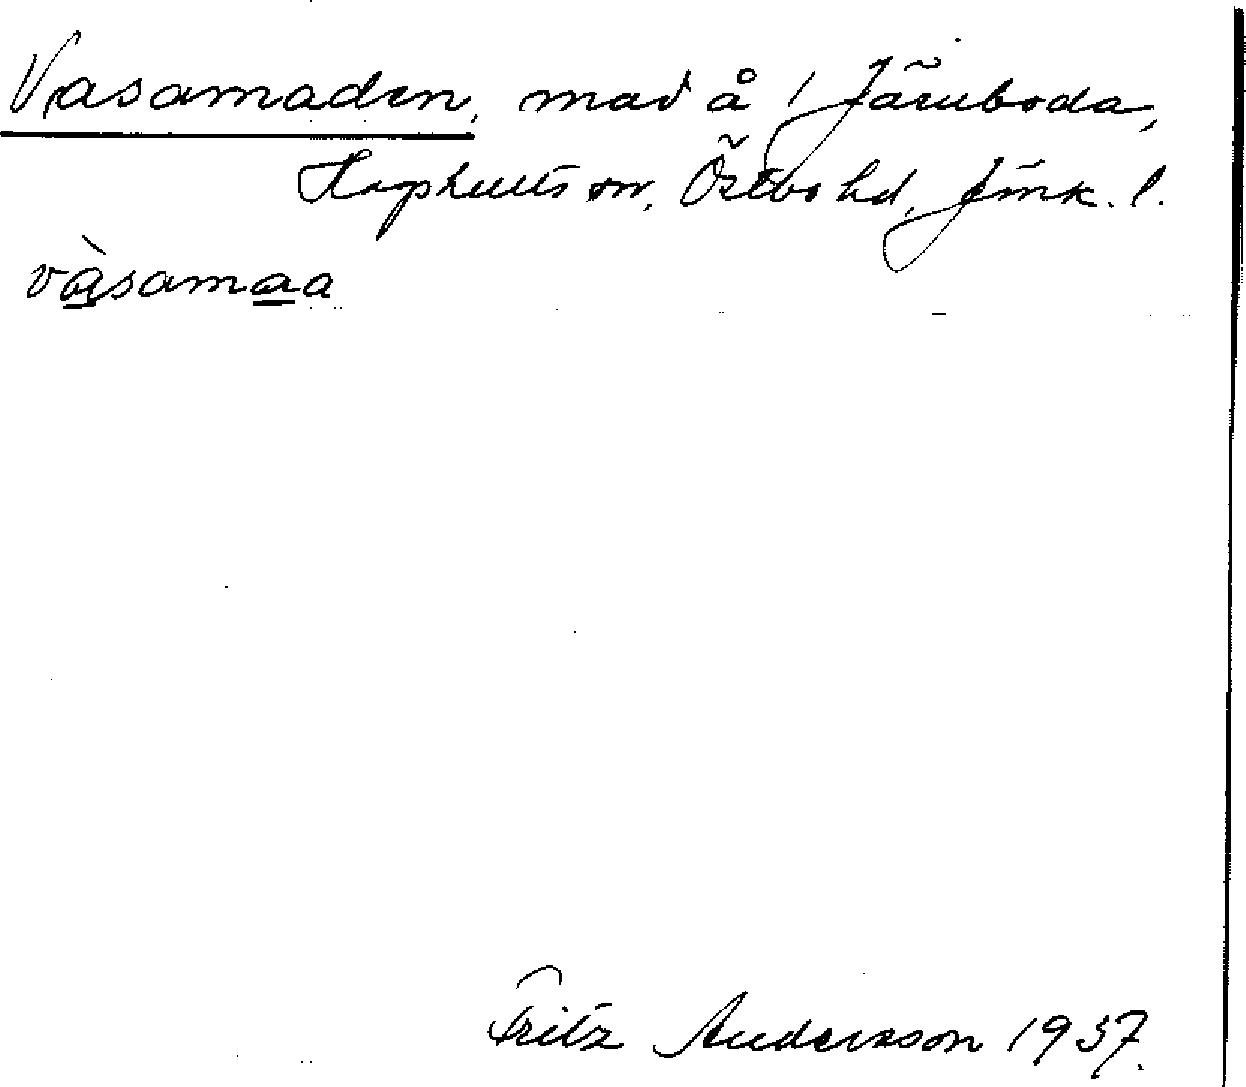 Vasamaden, mad å 1 Järnboda,
Hagshults sn, Östbo hd, Jönk. l.
vàsamaa
Fritz Andersson 1937.